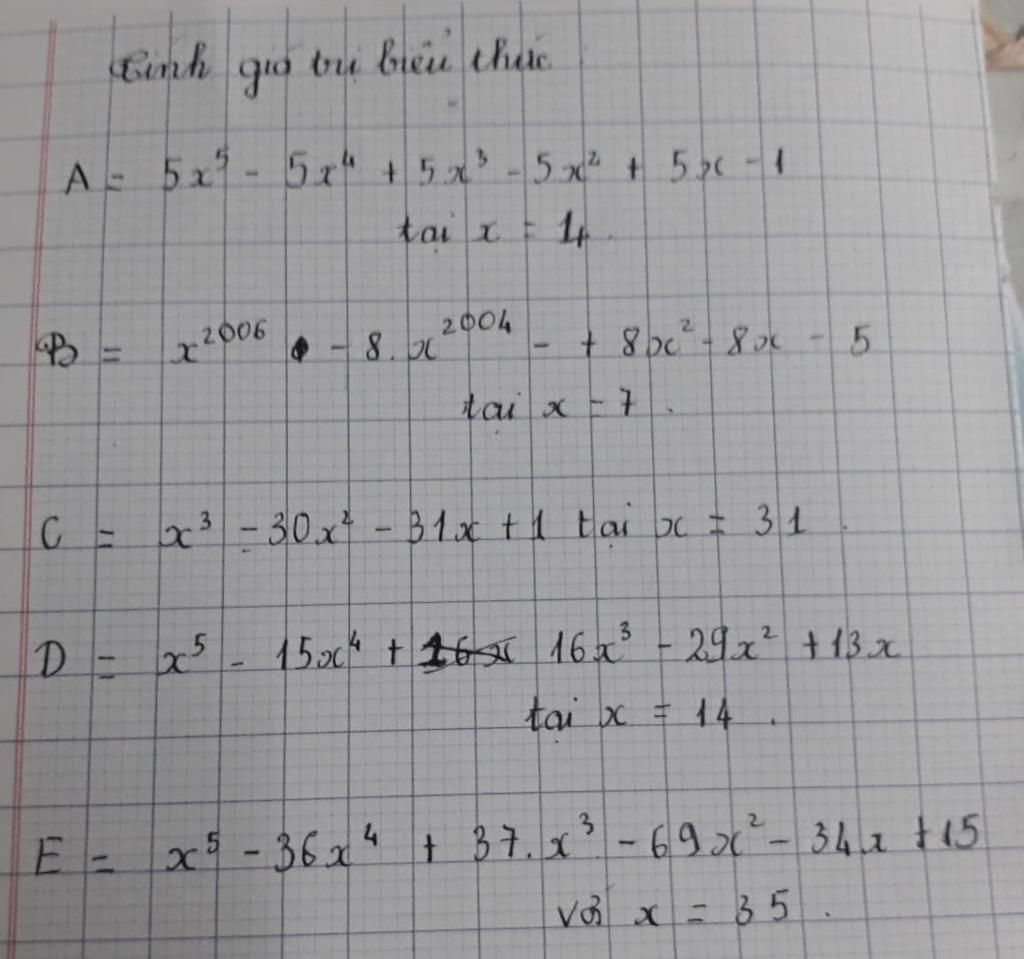 Tính giá trị biểu thức
A = 5x⁵ - 5x⁴ + 5x³ - 5x² + 5x - 1
tại x = 4.
B = x²⁰⁰⁶ - 8.x²⁰⁰⁴ - + 8x² - 8x - 5
tại x = 7.
C = x³ - 30x² - 31x + 1 tại x = 31.
D = x⁵ - 15x⁴ + 16x³ - 29x² + 13x
tại x = 14.
E = x⁵ - 36x⁴ + 37.x³ - 69x² - 34x + 15
với x = 35.